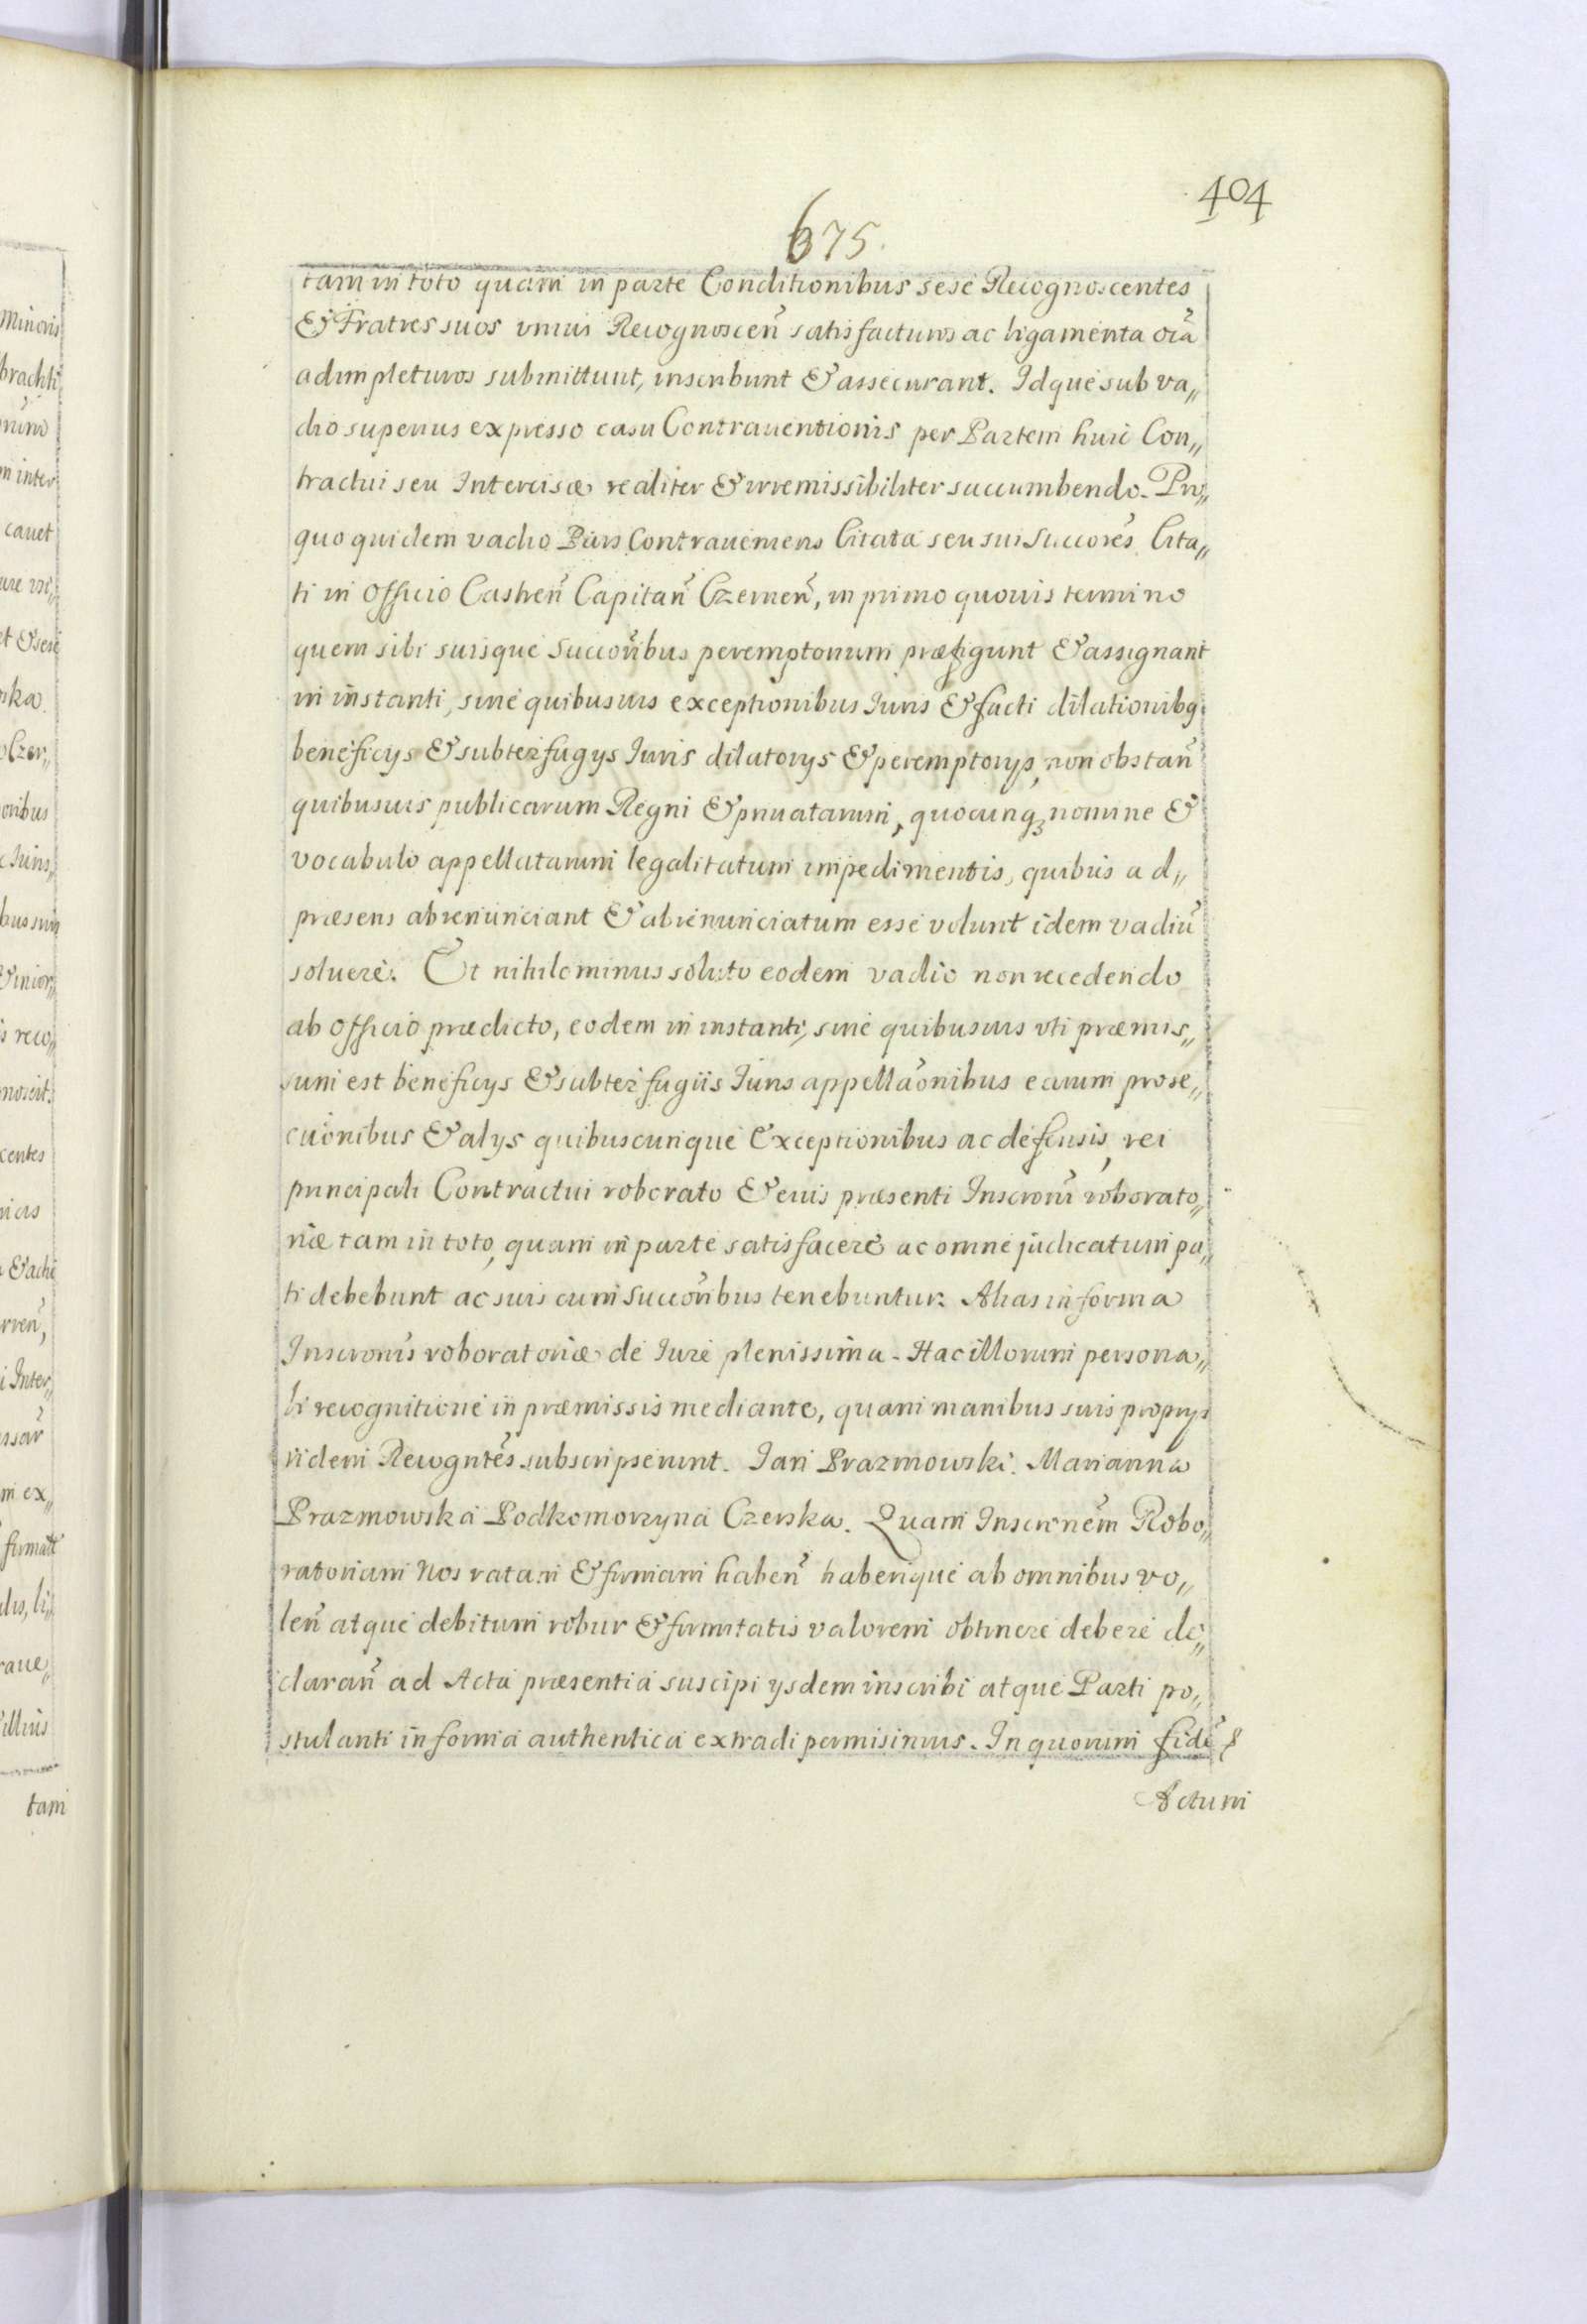 404
675.
tam in toto quam in parte Conditionibus sese Recognoscentes
& Fratres suos unius Recognosceñ satisfacturos ac ligamenta oïa
adimpleturos submittunt, inscribunt & assecurant. Idque sub va„
dio superius expresso casu Contrauentionis per Partem huic Con„
tractui seu Intercisæ realiter & irremissibiliter succumbendo. Pro„
quo quidem vadio Pars Contraueniens Citata seu sui Succores Cita„
ti in Officio Castreñ Capitañ Czerneñ, in primo quouis termino
quem sibi suisque Succoribus peremptorium præfigunt & assignant
in instanti, sine quibusuis exceptionibus Iuris & facti dilationibq
beneficys & subterfugys Iuris dilatorys & peremptorys, non obstañ
quibusuis publicarum Regni & priuatarum, quocunq3 nomine &
vocabulo appellatarum legalitatum impedimentis, quibus ad„
præsens abrenunciant & abrenunciatum esse volunt idem vadiũ
soluere. Et nihilominus soluto eodem vadio non recedendo
ab Officio prædicto, eodem in instanti, sine quibusuis vti præmis„
sum est beneficys & subterfugiis Iuris appellãonibus earum prose„
cuionibus & alys quibuscunque Exceptionibus ac defensis, rei
principali Contractui roborato & eius præsenti Inscroni roborato„
riæ tam in toto, quam in parte satisfacere ac omne judicatum pa„
ti debebunt ac suis cum Succoribus tenebuntur. Alias in forma
Inscronis roboratoriæ de Iure plenissima. Hac illorum persona„
li recognitione in præmissis mediante, quam manibus suis proprys
iidem Recogntes subscripserunt. Jan Prazmowski. Marianna
Prazmowska Podkomorzyna Czerska. Quam Inscronem Robo„
ratoriam Nos ratam & firmam habeñ haberique ab omnibus vo„
leñ atque debitum robur & firmitatis valorem obtinere debere de„
clarañ ad Acta præsentia suscipi ysdem inscribi atque Parti po„
stulanti in forma authentica extradi permisimus. In quorum fidẽ &
Actum